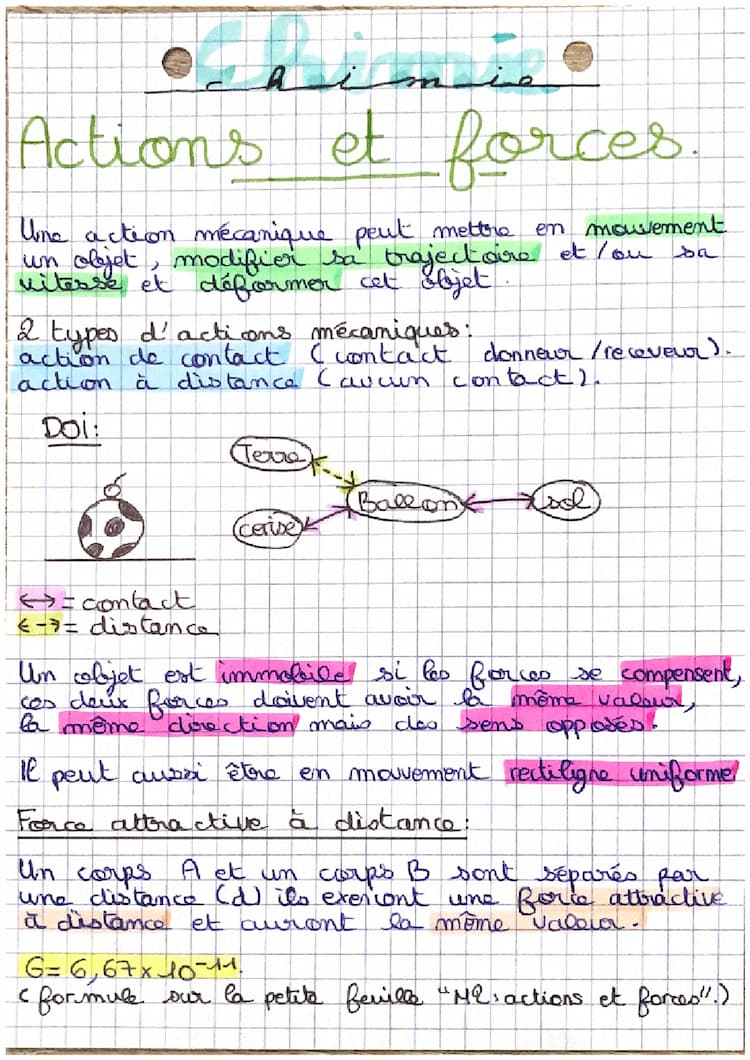 Chimie
chimie
Actions et forces.
Une action mécanique peut mettre en mouvement
un objet, modifier sa trajectoire et/ou sa
vitesse et déformer cet objet.
2 types d'actions mécaniques:
action de contact (contact donneur/receveur).
action à distance (aucun contact).
DOI:
Terre
Ballon
sol
cerise
↔ = contact
<-> = distance
Un objet est immobile si les forces se compensent,
ces deux forces doivent avoir la même valeur,
la même direction mais des sens opposés.
Il peut aussi être en mouvement rectiligne uniforme
Force attractive à distance:
Un corps A et un corps B sont séparés par
une distance (d) ils exercont une force attractive
à distance et auront la même valeur.
G=6,67×10⁻¹¹.
(formule sur la petite feuille "M2: actions et forces".)